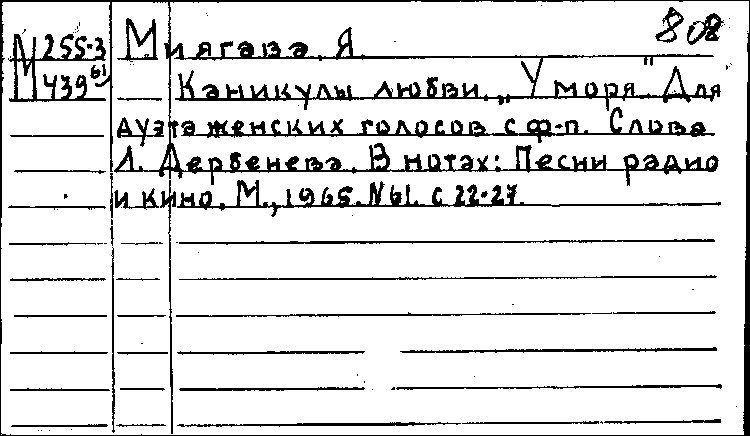 808
М 255-3 Миягава, Я.
М 439 61 Каникулы любви. „У моря". Для
дуэта женских голосов с ф-п. Слова
Л. Дербенева. В нотах: Песни радио
и кино. М., 1965. N 61. с 22-27.